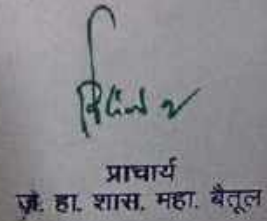 प्राचार्य
ज़े. हा. शास. महा. बैतूल